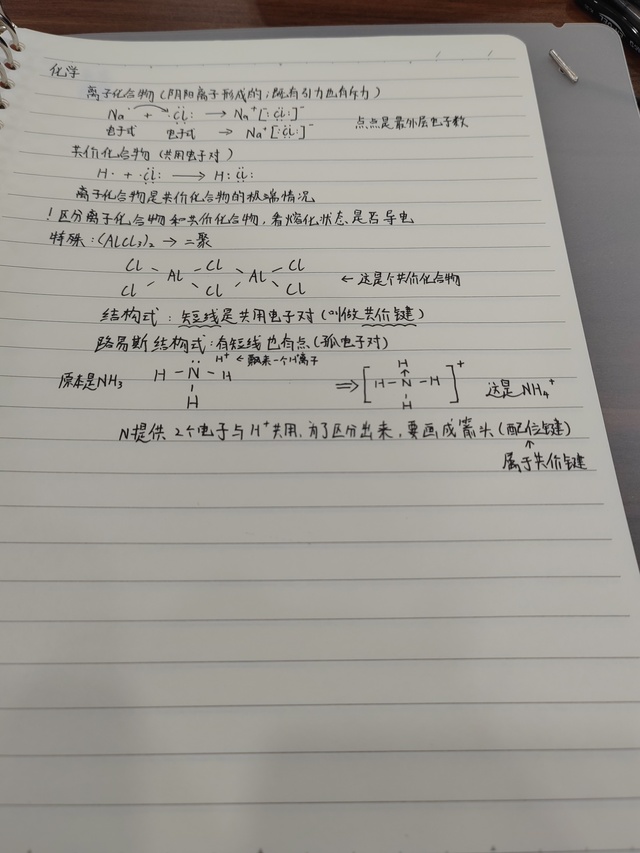 化学
离子化合物(阴阳离子形成的;既有引力也有斥力)
Na· + ·Cl: → Na⁺[:Cl:]⁻
电子式 电子式 → Na⁺[:Cl:]⁻ 点点是最外层电子数
共价化合物(共用电子对)
H· + ·Cl: → H:Cl:
离子化合物是共价化合物的极端情况
!区分离子化合物和共价化合物,看熔化状态是否导电
特殊:(AlCl₃)₂ → 二聚
Cl Cl Cl
Al Al ← 这是个共价化合物
Cl Cl Cl
结构式:短线是共用电子对(叫做共价键)
路易斯结构式:有短线也有点(孤电子对)
H⁺ ← 飘来一个H⁺离子
原本是NH₃ H-N-H ⇒ [H-N-H]⁺ 这是NH₄⁺
H H H
N提供2个电子与H⁺共用,为了区分出来,要画成箭头(配位键)
↑
属于共价键